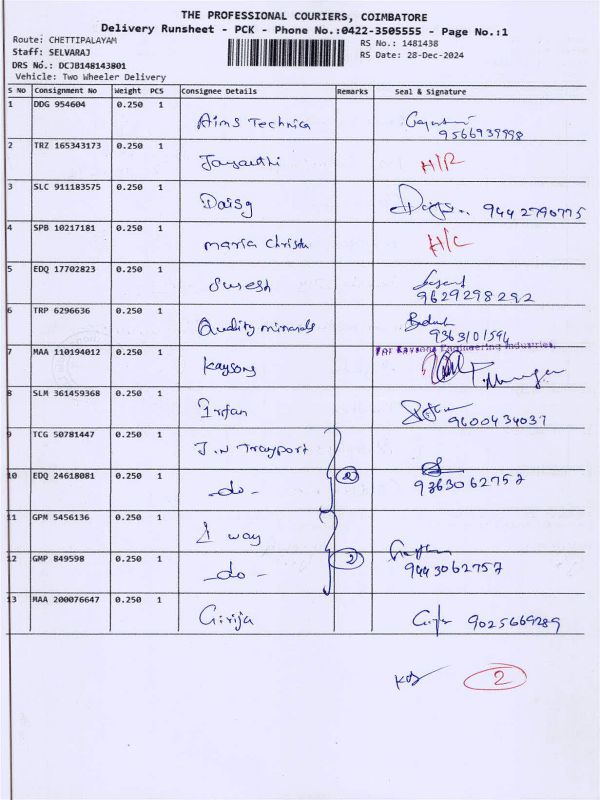 THE PROFESSIONAL COURIERS, COIMBATORE
Delivery Runsheet - PCK - Phone No.:0422-3505555 - Page No.:1
Route: CHETTIPALAYAM
Staff: SELVARAJ
DRS No.: DCJ8148143801
Vehicle: Two Wheeler Delivery
RS No.: 1481438
RS Date: 28-Dec-2024
S No Consignment No Weight PCS Consignee Details Remarks Seal & Signature
1 DDG 954604 0.250 1 Aims Technica
9566939998
2 TRZ 165343173 0.250 1 Jayanthi H/R
3 SLC 911183575 0.250 1 Daisy 9442790775
4 SPB 10217181 0.250 1 maria Christu H/C
5 EDQ 17702823 0.250 1 Suresh
9629298292
6 TRP 6296636 0.250 1 Quality minarals
9363101594
7 MAA 110194012 0.250 1 Kaysons Engineering Industries,
8 SLM 361459368 0.250 1 Irfan 9600434037
9 TCG 50781447 0.250 1 J.N Trayport
10 EDQ 24618081 0.250 1 -do- 2 9363062757
11 GPM 5456136 0.250 1 1 way
12 GMP 849598 0.250 1 -do- 2 9443062757
13 MAA 200076647 0.250 1 Girija 9025669289
2